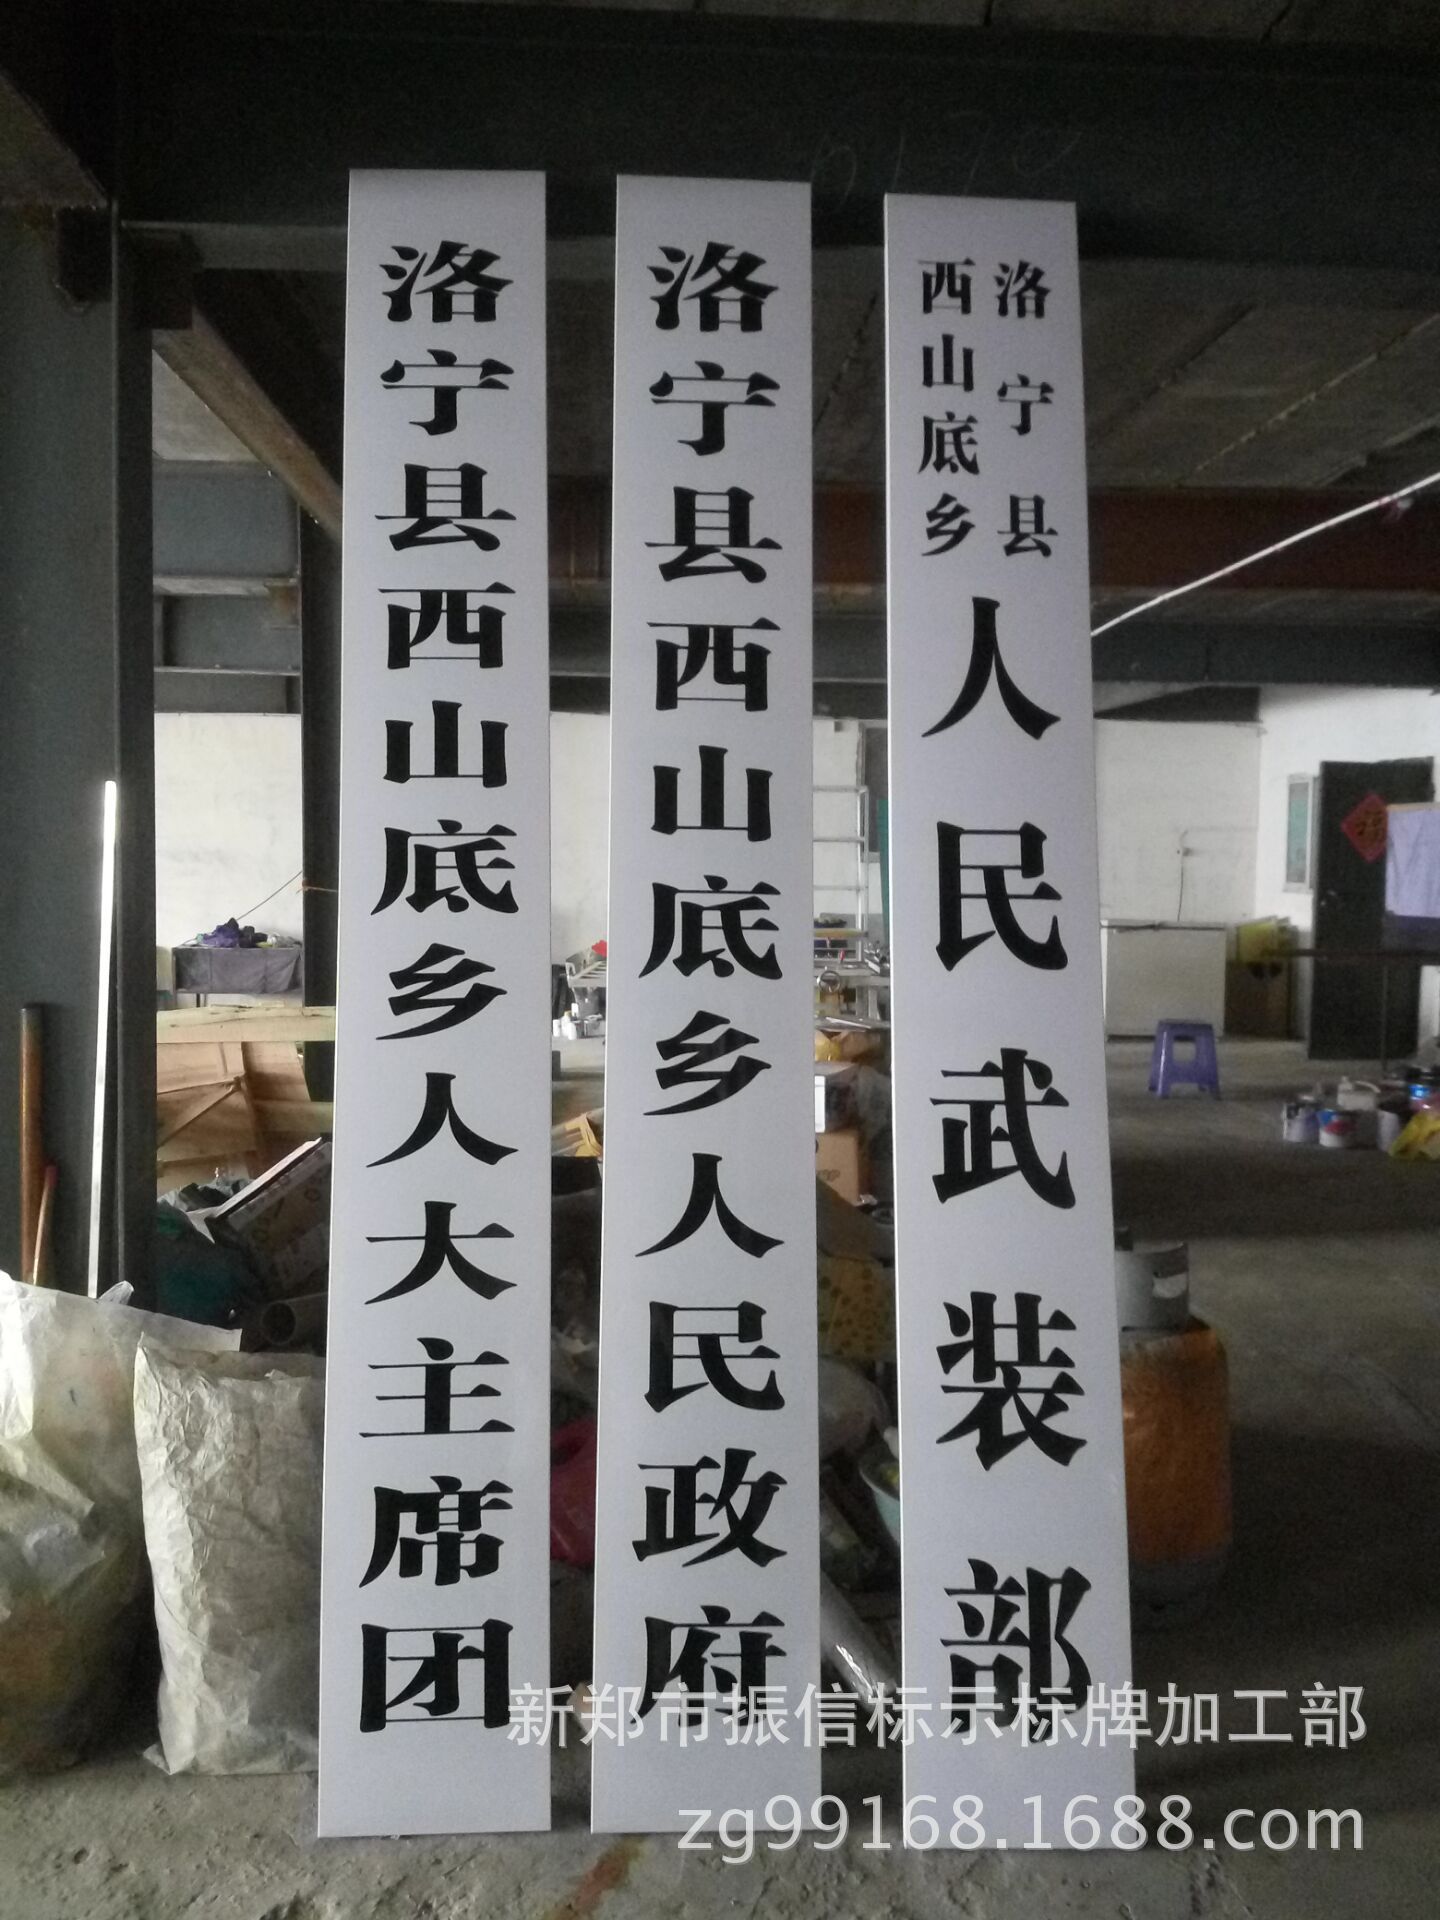 洛宁县西山底乡人大主席团
洛宁县西山底乡人民政府
洛宁县
西山底乡
人民武装部
福
新郑市振信标示标牌加工部
zg99168.1688.com